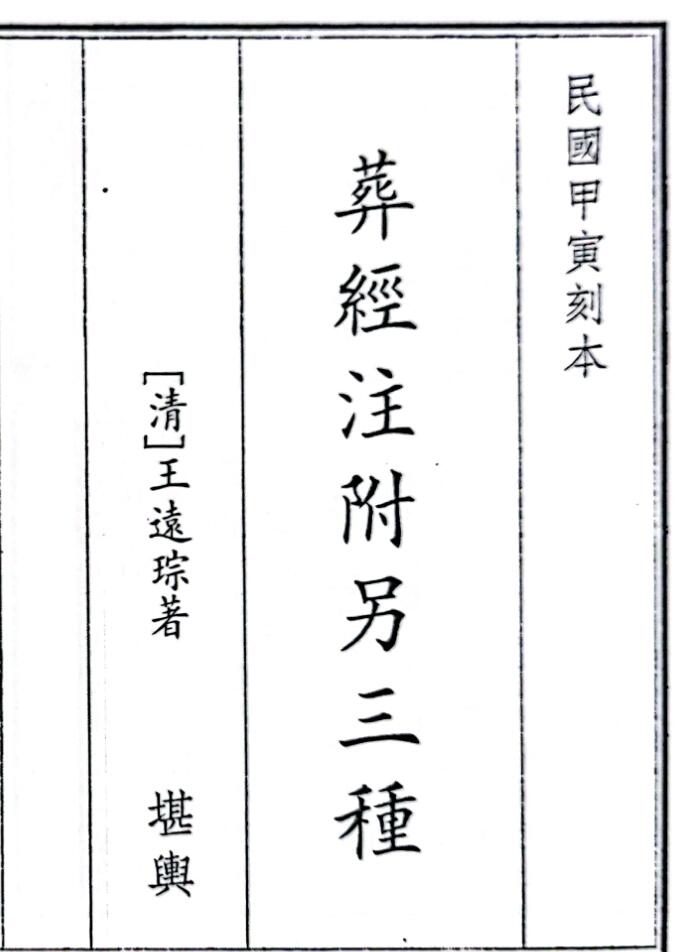 民國甲寅刻本
葬經注附另三種
[清]王遠琮著 堪輿